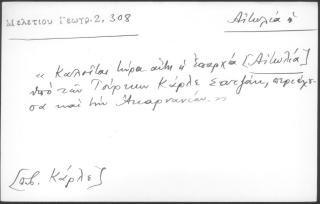 Μελετίου Γεωγρ. 2, 308
Αἰτωλία ἡ
« Καλεῖται τώρα αὕτη ἡ ἐπαρχία [Αἰτωλία]
ὑπὸ τῶν Τούρκων Κάρλε Σαντζάκ, περιέχου-
σα καὶ τὴν Ἀκαρνανίαν. »
[πβ. Κάρλε]